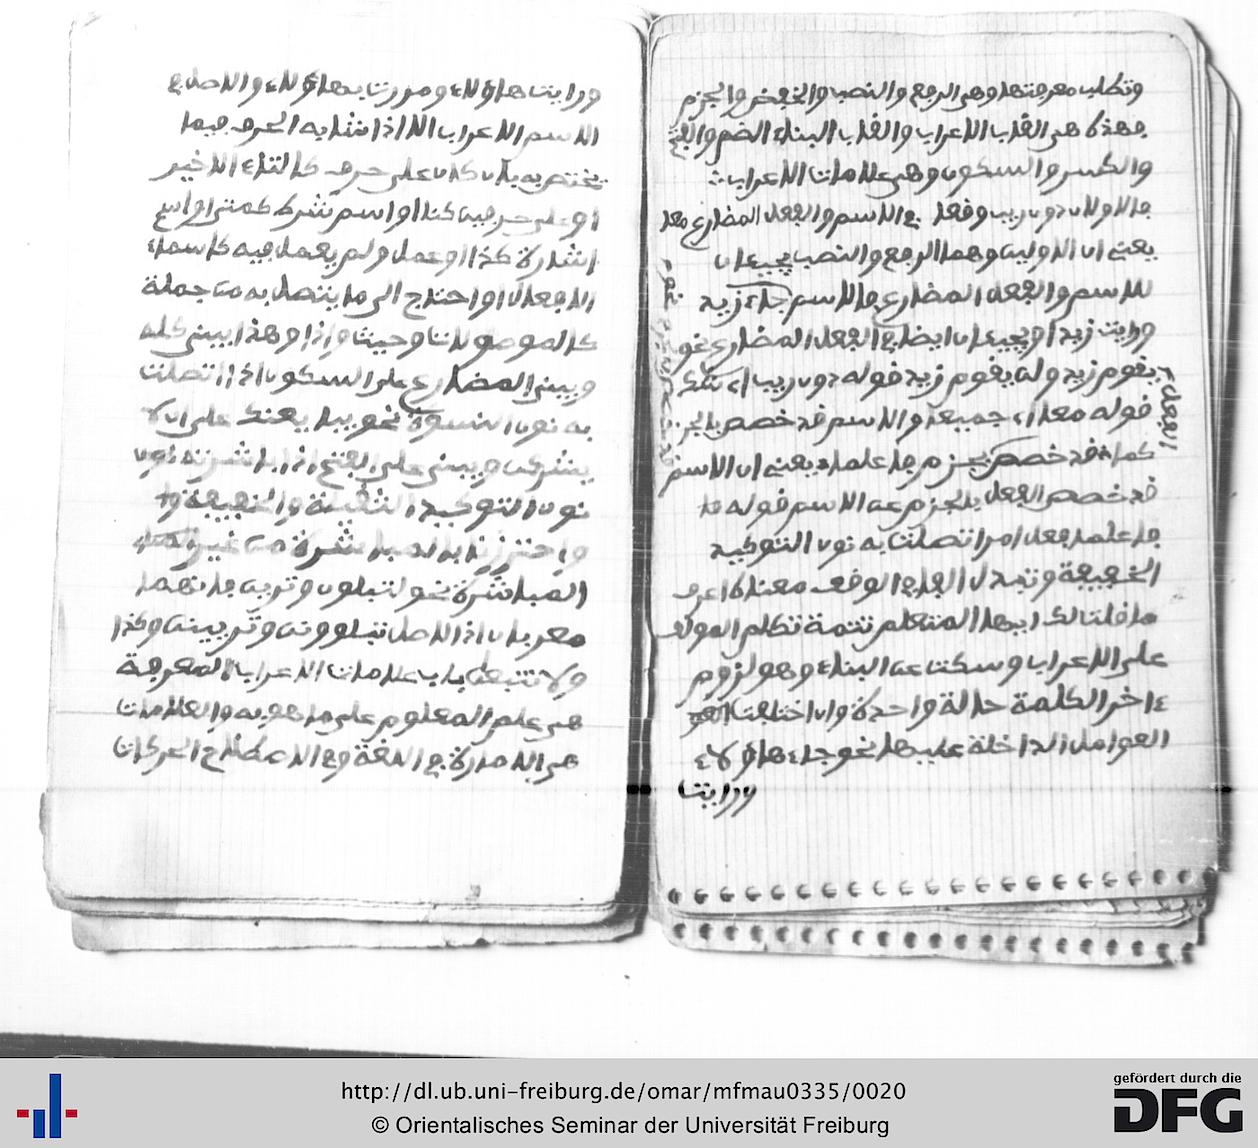 وتطلب معرفتها وهي الرفع والنصب والخفض والجزم
فهذه هي القاب الاعراب والقاب البناء الضم والفتح
والكسر والسكون وهي علامات الاعراب
فالاولان دون ريب وقعا في الاسم والفعل المضارع معا
يعني ان الاولين وهما الرفع والنصب يجيئان
للاسم والفعل المضارع فالاسم جاء زيد
ورايت زيدا ويجيئان ايضا في الفعل المضارع نحو
يقوم زيد ولن يقوم زيد قوله دون ريب اي شك
قوله معا اي جميعا والاسم قد خصص بالجر
كما قد خصص بجزم فاعلما يعني ان الاسم
قد خصص الفعل بالجزم عن الاسم قوله
فاعلما فعل امر اتصلت به نون التوكيد
الخفيفة وتبدل الفا في الوقف معناه اعرف
ما قلت لك ايها المتعلم تتمة تكلم المولف
على الاعراب وسكت عن البناء وهو لزوم
ءاخر الكلمة حالة واحدة وان اختلفت
العوامل الداخلة عليها نحو جاء هاؤلاء
ورايت
الفعل
ورايت هاؤلاء ومررت بهاؤلاء والاصل في
الاسم الاعراب الا اذا شابه الحرف فيما
يختص به بان كان على حرف كالتاء الاخير
او على حرفين كنا او اسم شرك كمتى او اسم
اشارة كذا او عمل ولم يعمل فيه كاسماء
الافعال او احتاج الى ما يتصل به من جملة
كالموصولات وحيث واذا وهذا يبنى كله
ويبنى المضارع على السكون اذا اتصلت
به نون النسوة نحو يعنك على ان لا
يشركن ويبنى على الفتح اذا باشرته نون
نون التوكيد الثقيلة والخفيفة
واحترزنا بالمباشرة من غير
المباشرة نحو لتبلون وترين فانهما
معربان اذ الاصل تبلوون وتربين وكذا
ولا تتبعان باب علامات الاعراب المعرفة
هي علم المعلوم على ما هو به والعلامات
هي الامارة في اللغة وفي الاصطلاح الحركات
http://dl.ub.uni-freiburg.de/omar/mfmau0335/0020
© Orientalisches Seminar der Universität Freiburg
gefördert durch die
DFG